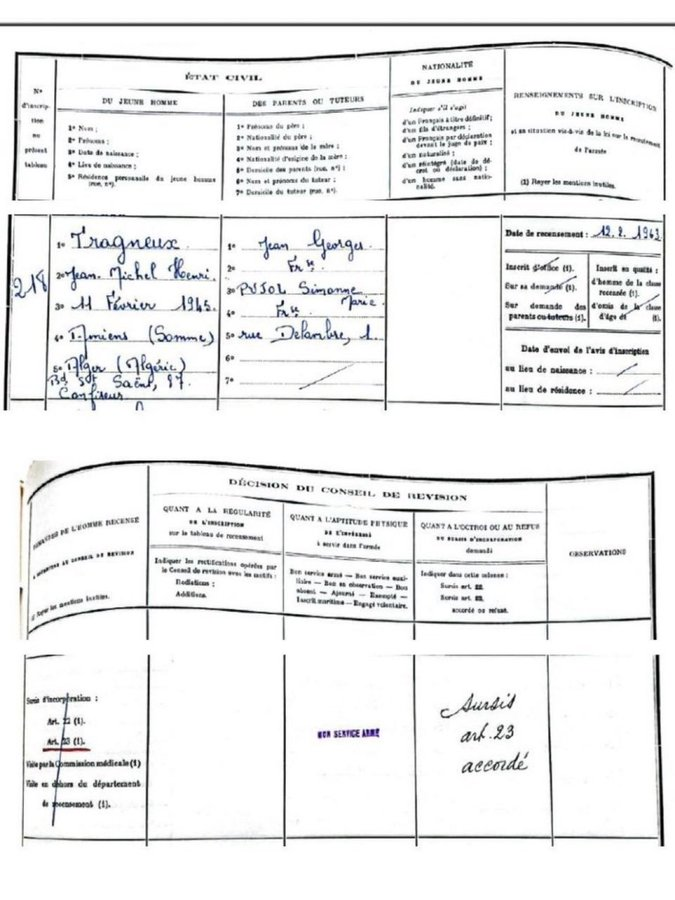 N°
d'inscrip-
tion
au
présent
tableau
ÉTAT CIVIL
DU JEUNE HOMME
1° Nom ;
2° Prénoms ;
3° Date de naissance ;
4° Lieu de naissance ;
5° Résidence personnelle du jeune homme
(rue, n°).
DES PARENTS OU TUTEURS
1° Prénoms du père ;
2° Nationalité du père ;
3° Nom et prénoms de la mère ;
4° Nationalité d'origine de la mère ;
5° Domicile des parents (rue, n°) ;
6° Nom et prénoms du tuteur ;
7° Domicile du tuteur (rue, n°).
NATIONALITÉ
DU JEUNE HOMME
Indiquer s'il s'agit
d'un Français à titre définitif ;
d'un fils d'étrangers ;
d'un Français par déclaration
devant le juge de paix ;
d'un naturalisé ;
d'un réintégré (date de dé-
cret ou déclaration) ;
d'un homme sans natio-
nalité.
RENSEIGNEMENTS SUR L'INSCRIPTION
DU JEUNE HOMME
et sa situation vis-à-vis de la loi sur le recrutement
de l'armée
(1) Rayer les mentions inutiles.
218
1° Tragneux
2° Jean Michel Henri
3° 11 Février 1945.
4° Amiens (Somme)
5° Alger (Algérie)
Bd St Saëns, 87.
Confiseur
1° Jean Georges.
2° Frse.
3° PUJOL Simonne
Marie
4° Frse
5° rue Delambre, 1.
6°
7°
Date de recensement : 12. 2. 1963
Inscrit d'office (1).
Sur sa demande (1).
Sur demande des
parents ou tuteurs (1).
Inscrit en qualité :
d'homme de la classe
recensée (1).
d'omis de la classe
d'âge de (1).
Date d'envoi de l'avis d'inscription
au lieu de naissance :
au lieu de résidence :
DE L'HOMME RECENSÉ
AU CONSEIL DE REVISION
Rayer les mentions inutiles.
DÉCISION DU CONSEIL DE REVISION
QUANT A LA RÉGULARITÉ
DE L'INSCRIPTION
sur le tableau de recensement
Indiquer les rectifications opérées par
le Conseil de revision avec les motifs :
Radiations ;
Additions.
QUANT A L'APTITUDE PHYSIQUE
DE L'INTÉRESSÉ
à servir dans l'armée
Bon service armé — Bon service auxi-
liaire — Bon sa observation — Bon
absent — Ajourné — Exempté —
Inscrit maritime — Engagé volontaire.
QUANT A L'OCTROI OU AU REFUS
DU SURSIS D'INCORPORATION
demandé
Indiquer dans cette colonne :
Sursis art. 22.
Sursis art. 23.
accordé ou refusé.
OBSERVATIONS
Sursis d'incorporation :
Art. 22 (1).
Art. 23 (1).
Visite par la Commission médicale (1)
Visite en dehors du département
de recensement (1).
BON SERVICE ARMÉ
Sursis
art. 23
accordé